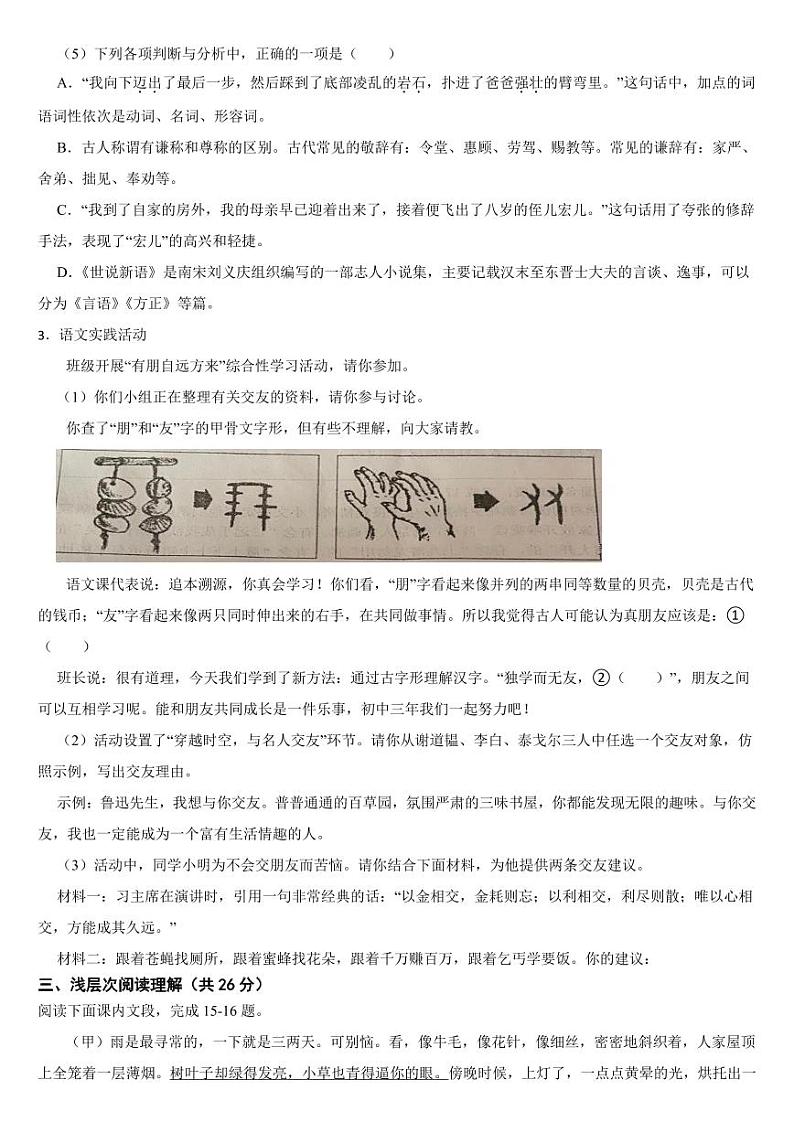 （5）下列各项判断与分析中，正确的一项是（　　）
A．“我向下迈出了最后一步，然后踩到了底部凌乱的岩石，扑进了爸爸强壮的臂弯里。”这句话中，加点的词
语词性依次是动词、名词、形容词。
B．古人称谓有谦称和尊称的区别。古代常见的敬辞有：令堂、惠顾、劳驾、赐教等。常见的谦辞有：家严、
舍弟、拙见、奉劝等。
C．“我到了自家的房外，我的母亲早已迎着出来了，接着便飞出了八岁的侄儿宏儿。”这句话用了夸张的修辞
手法，表现了“宏儿”的高兴和轻捷。
D．《世说新语》是南宋刘义庆组织编写的一部志人小说集，主要记载汉末至东晋士大夫的言谈、逸事，可以
分为《言语》《方正》等篇。
3．语文实践活动
班级开展“有朋自远方来”综合性学习活动，请你参加。
（1）你们小组正在整理有关交友的资料，请你参与讨论。
你查了“朋”和“友”字的甲骨文字形，但有些不理解，向大家请教。
语文课代表说：追本溯源，你真会学习！你们看，“朋”字看起来像并列的两串同等数量的贝壳，贝壳是古代
的钱币；“友”字看起来像两只同时伸出来的右手，在共同做事情。所以我觉得古人可能认为真朋友应该是：①
（　　）
班长说：很有道理，今天我们学到了新方法：通过古字形理解汉字。“独学而无友，②（　　）”，朋友之间
可以互相学习呢。能和朋友共同成长是一件乐事，初中三年我们一起努力吧！
（2）活动设置了“穿越时空，与名人交友”环节。请你从谢道韫、李白、泰戈尔三人中任选一个交友对象，仿
照示例，写出交友理由。
示例：鲁迅先生，我想与你交友。普普通通的百草园，氛围严肃的三味书屋，你都能发现无限的趣味。与你交
友，我也一定能成为一个富有生活情趣的人。
（3）活动中，同学小明为不会交朋友而苦恼。请你结合下面材料，为他提供两条交友建议。
材料一：习主席在演讲时，引用一句非常经典的话：“以金相交，金耗则忘；以利相交，利尽则散；唯以心相
交，方能成其久远。”
材料二：跟着苍蝇找厕所，跟着蜜蜂找花朵，跟着千万赚百万，跟着乞丐学要饭。你的建议：
三、浅层次阅读理解（共 26 分）
阅读下面课内文段，完成 15-16 题。
（甲）雨是最寻常的，一下就是三两天。可别恼。看，像牛毛，像花针，像细丝，密密地斜织着，人家屋顶
上全笼着一层薄烟。树叶子却绿得发亮，小草也青得逼你的眼。傍晚时候，上灯了，一点点黄晕的光，烘托出一